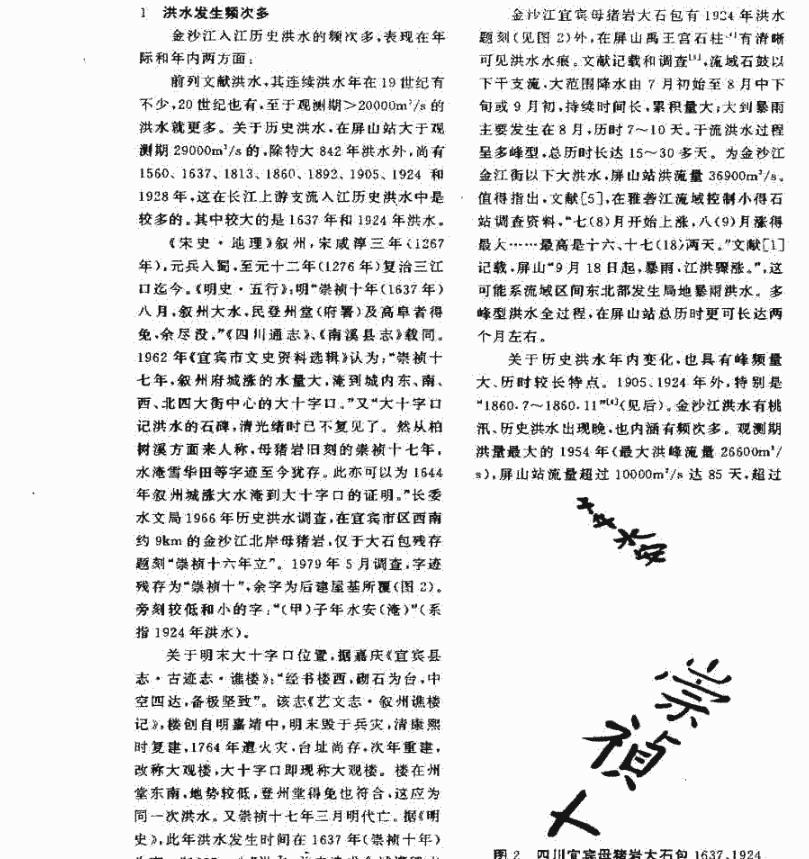 1 洪水发生频次多
金沙江入江历史洪水的频次多，表现在年
际和年内两方面：
前列文献洪水，其连续洪水年在19世纪有
不少，20世纪也有，至于观测期>20000m³/s的
洪水就更多。关于历史洪水，在屏山站大于观
测期29000m³/s的，除特大842年洪水外，尚有
1560、1637、1813、1860、1892、1905、1924和
1928年，这在长江上游支流入江历史洪水中是
较多的。其中较大的是1637年和1924年洪水。
《宋史·地理》叙州，宋咸淳三年（1267
年），元兵入蜀，至元十二年（1276年）复治三江
口迄今。《明史·五行》：明“崇祯十年（1637年）
八月，叙州大水，民登州堂（府署）及高阜者得
免，余尽没。”《四川通志》、《南溪县志》载同。
1962年《宜宾市文史资料选辑》认为：“崇祯十
七年，叙州府城涨的水量大，淹到城内东、南、
西、北四大街中心的大十字口。”又“大十字口
记洪水的石碑，清光绪时已不复见了。然从柏
树溪方面来人称，母猪岩旧刻的崇祯十七年，
水淹雪华田等字迹至今犹存。此亦可以为1644
年叙州城涨大水淹到大十字口的证明。”长委
水文局1966年历史洪水调查，在宜宾市区西南
约9km的金沙江北岸母猪岩，仅于大石包残存
题刻“崇祯十六年立”。1979年5月调查，字迹
残存为“崇祯十”，余字为后建屋基所覆（图2）。
旁刻较低和小的字：“（甲）子年水安（淹）”（系
指1924年洪水）。
关于明末大十字口位置，据嘉庆《宜宾县
志·古迹志·谯楼》：“经书楼西，砌石为台，中
空四达，备极坚致”。该志《艺文志·叙州谯楼
记》，楼创自明嘉靖中，明末毁于兵灾，清康熙
时复建，1764年遭火灾，台址尚存，次年重建，
改称大观楼，大十字口即现称大观楼。楼在州
堂东南，地势较低，登州堂得免也符合，这应为
同一次洪水。又崇祯十七年三月明代亡。据《明
史》，此年洪水发生时间在1637年（崇祯十年）
金沙江宜宾母猪岩大石包有1924年洪水
题刻（见图2）外，在屏山禹王宫石柱有清晰
可见洪水水痕。文献记载和调查，流域石鼓以
下干支流，大范围降水由7月初始至8月中下
旬或9月初，持续时间长，累积量大；大到暴雨
主要发生在8月，历时7～10天。干流洪水过程
呈多峰型，总历时长达15～30多天。为金沙江
金江街以下大洪水，屏山站洪流量36900m³/s。
值得指出，文献［5］，在雅砻江流域控制小得石
站调查资料，“七（8）月开始上涨，八（9）月涨得
最大……最高是十六、十七（18）两天。”文献［1］
记载，屏山“9月18日起，暴雨，江洪骤涨。”，这
可能系流域区间东北部发生局地暴雨洪水。多
峰型洪水全过程，在屏山站总历时更可长达两
个月左右。
关于历史洪水年内变化，也具有峰频量
大、历时较长特点。1905、1924年外，特别是
“1860.7～1860.11”[4]（见后）。金沙江洪水有桃
汛、历史洪水出现晚，也内涵有频次多。观测期
洪量最大的1954年（最大洪峰流量26600m³/
s），屏山站流量超过10000m³/s达85天，超过
子年水安
崇祯十
图2 四川宜宾母猪岩大石包1637、1924